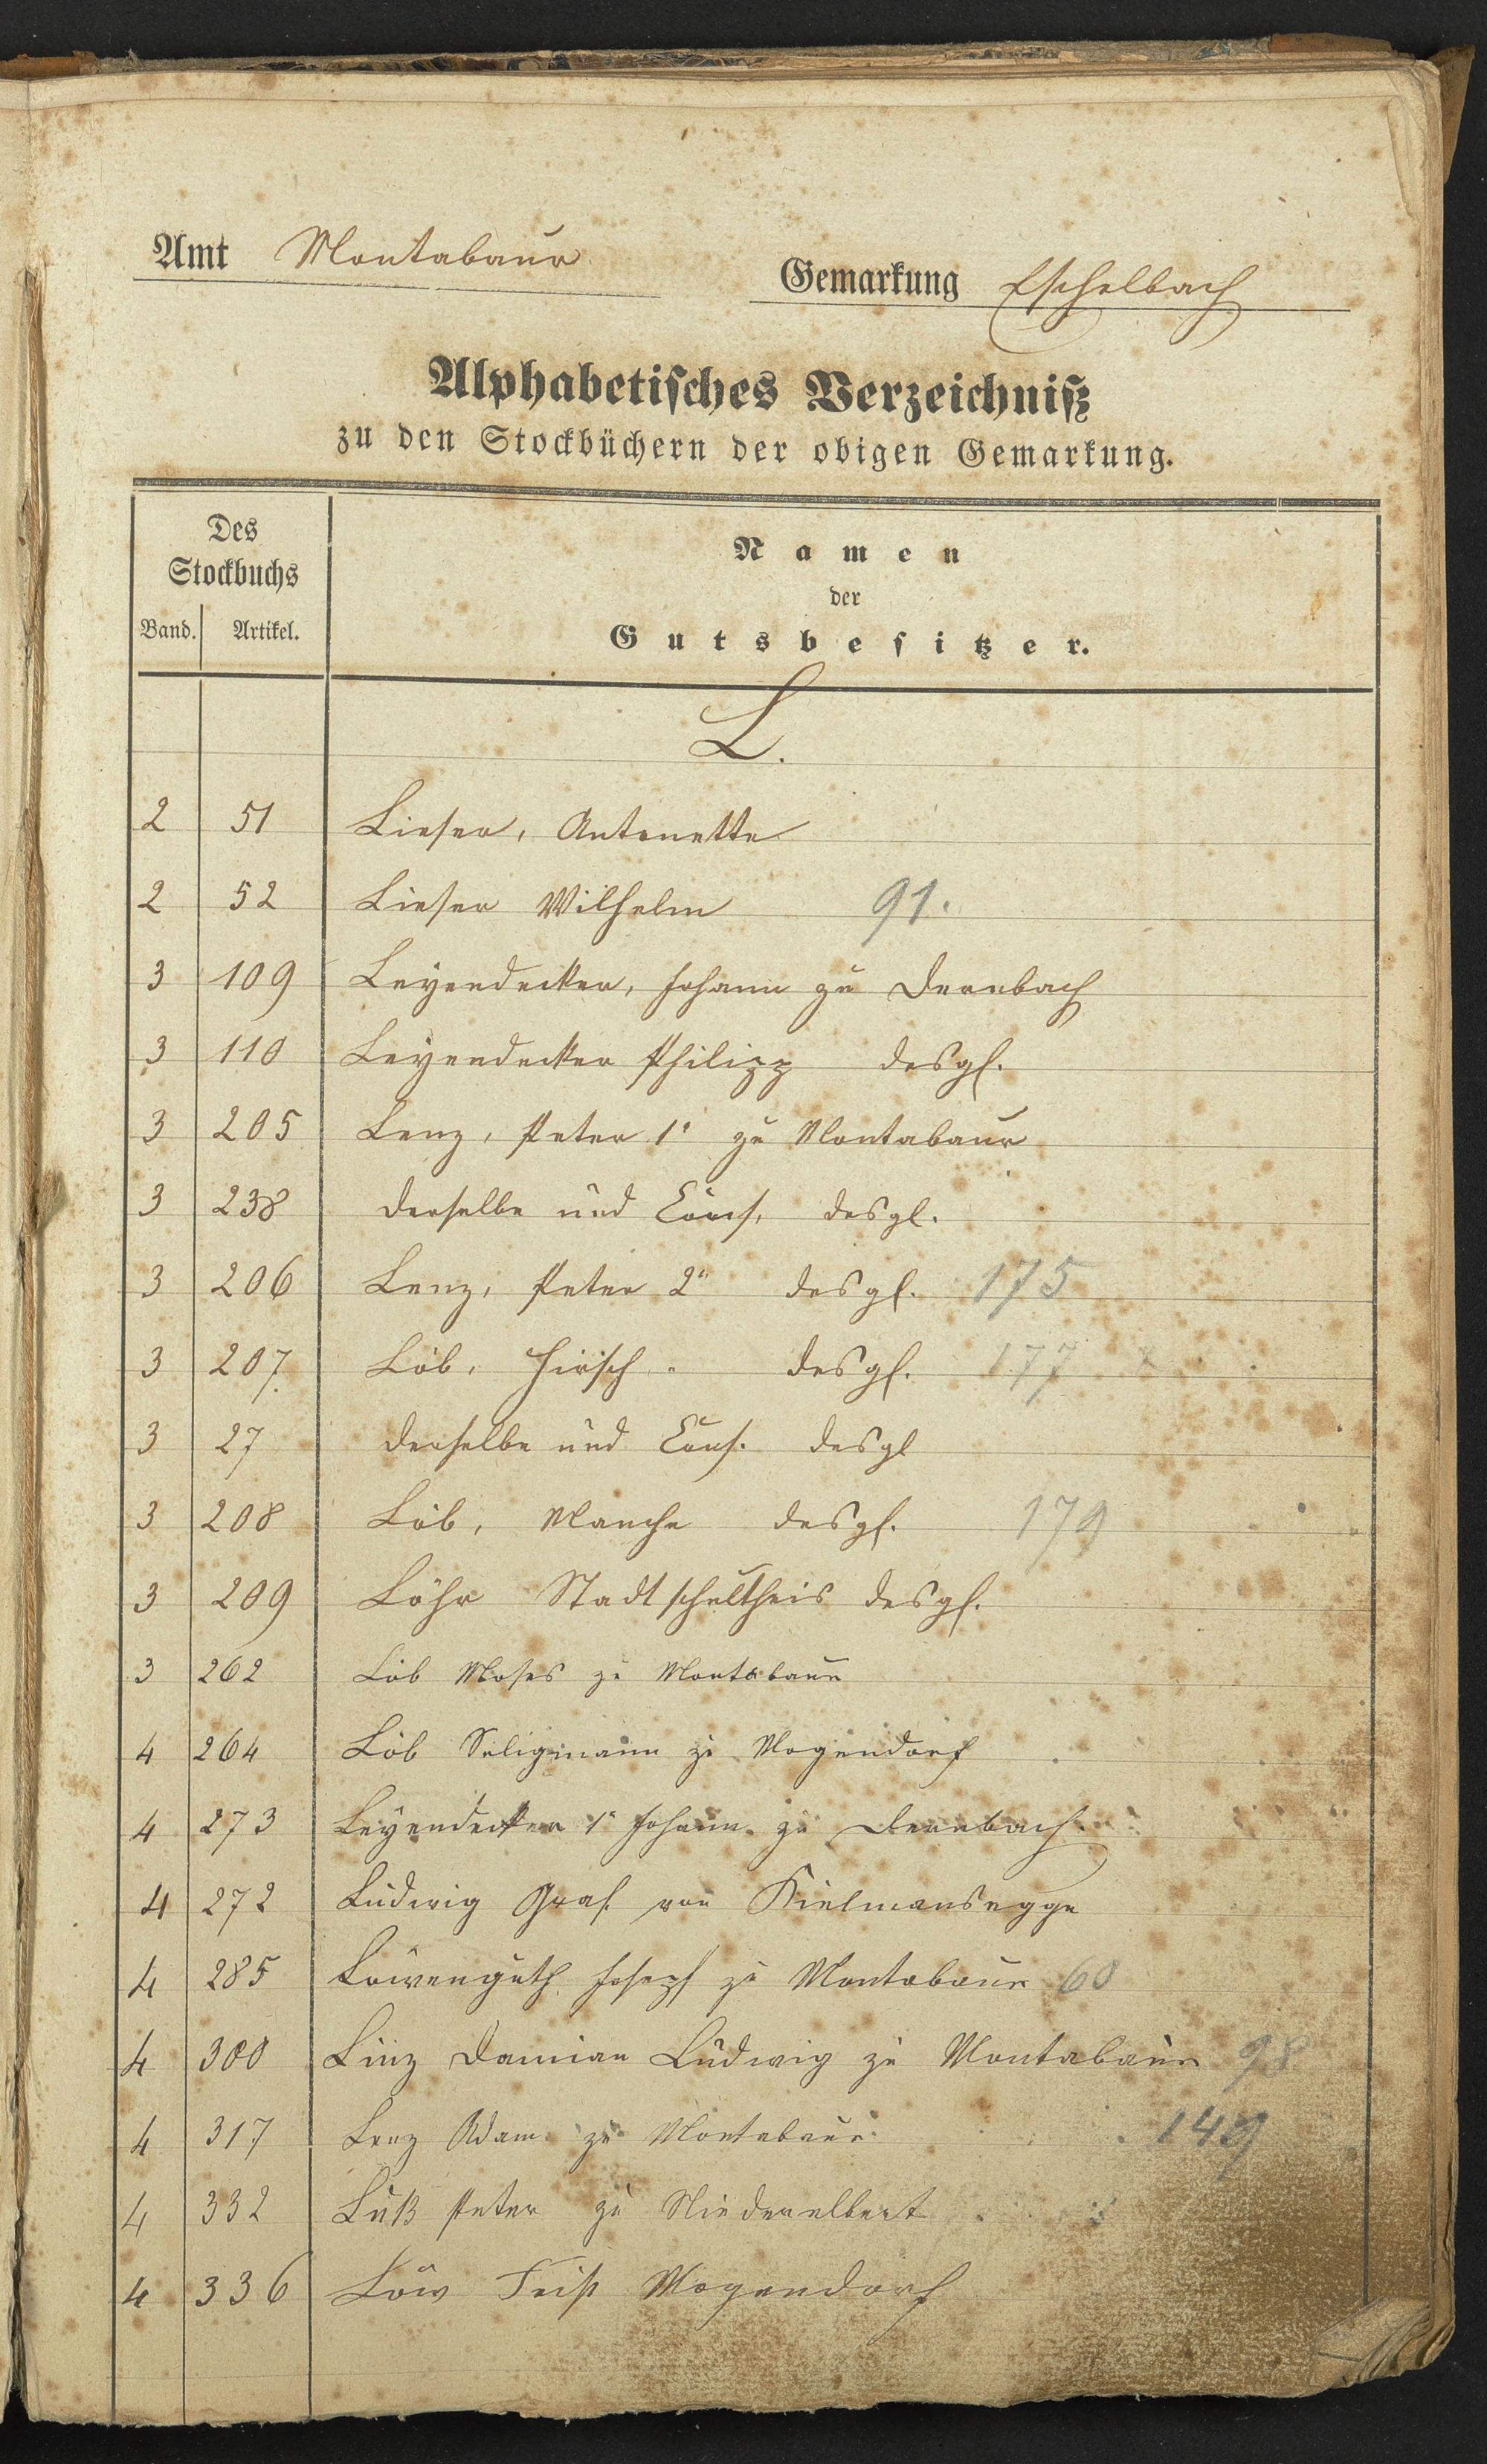 Amt Montabaur
Gemarkung Eschelbach
Alphabetisches Verzeichniß
zu den Stockbüchern der obigen Gemarkung.
Des
Stockbuchs
Band. Artikel.
Namen
der
Gutsbesitzer.
L.
2 51 Lieser, Antonette
2 52 Lieser Wilhelm 91.
3 109 Leyendecker, Johann zu Dernbach
3 110 Leyendecker Philipp desgl.
3 205 Lenz, Peter 1r zu Montabaur
3 238 Derselbe und Cons. desgl.
3 206 Lenz, Peter 2r desgl. 175
3 207. Löb, Hirsch desgl. 177
3 27 Derselbe und Cons. desgl
3 208 Löb, Manche desgl. 179
3 209 Löhr Stadtschultheis desgl.
3 262 Löb Moses zu Montabaur
4 264 Löb Seligmann zu Mogendorf
4 273 Leyendecker 1r Johann zu Dernbach
4 272 Ludwig Graf von Kielmansegge
4 285 Löwenguth Joseph zu Montabaur 60
4 300 Linz Damian Ludwig zu Montabaur 98
4 317 Lenz Adam zu Montabaur 149
4 332 Luß Peter zu Niederelbert
4 336 Löw Feist Mogendorf